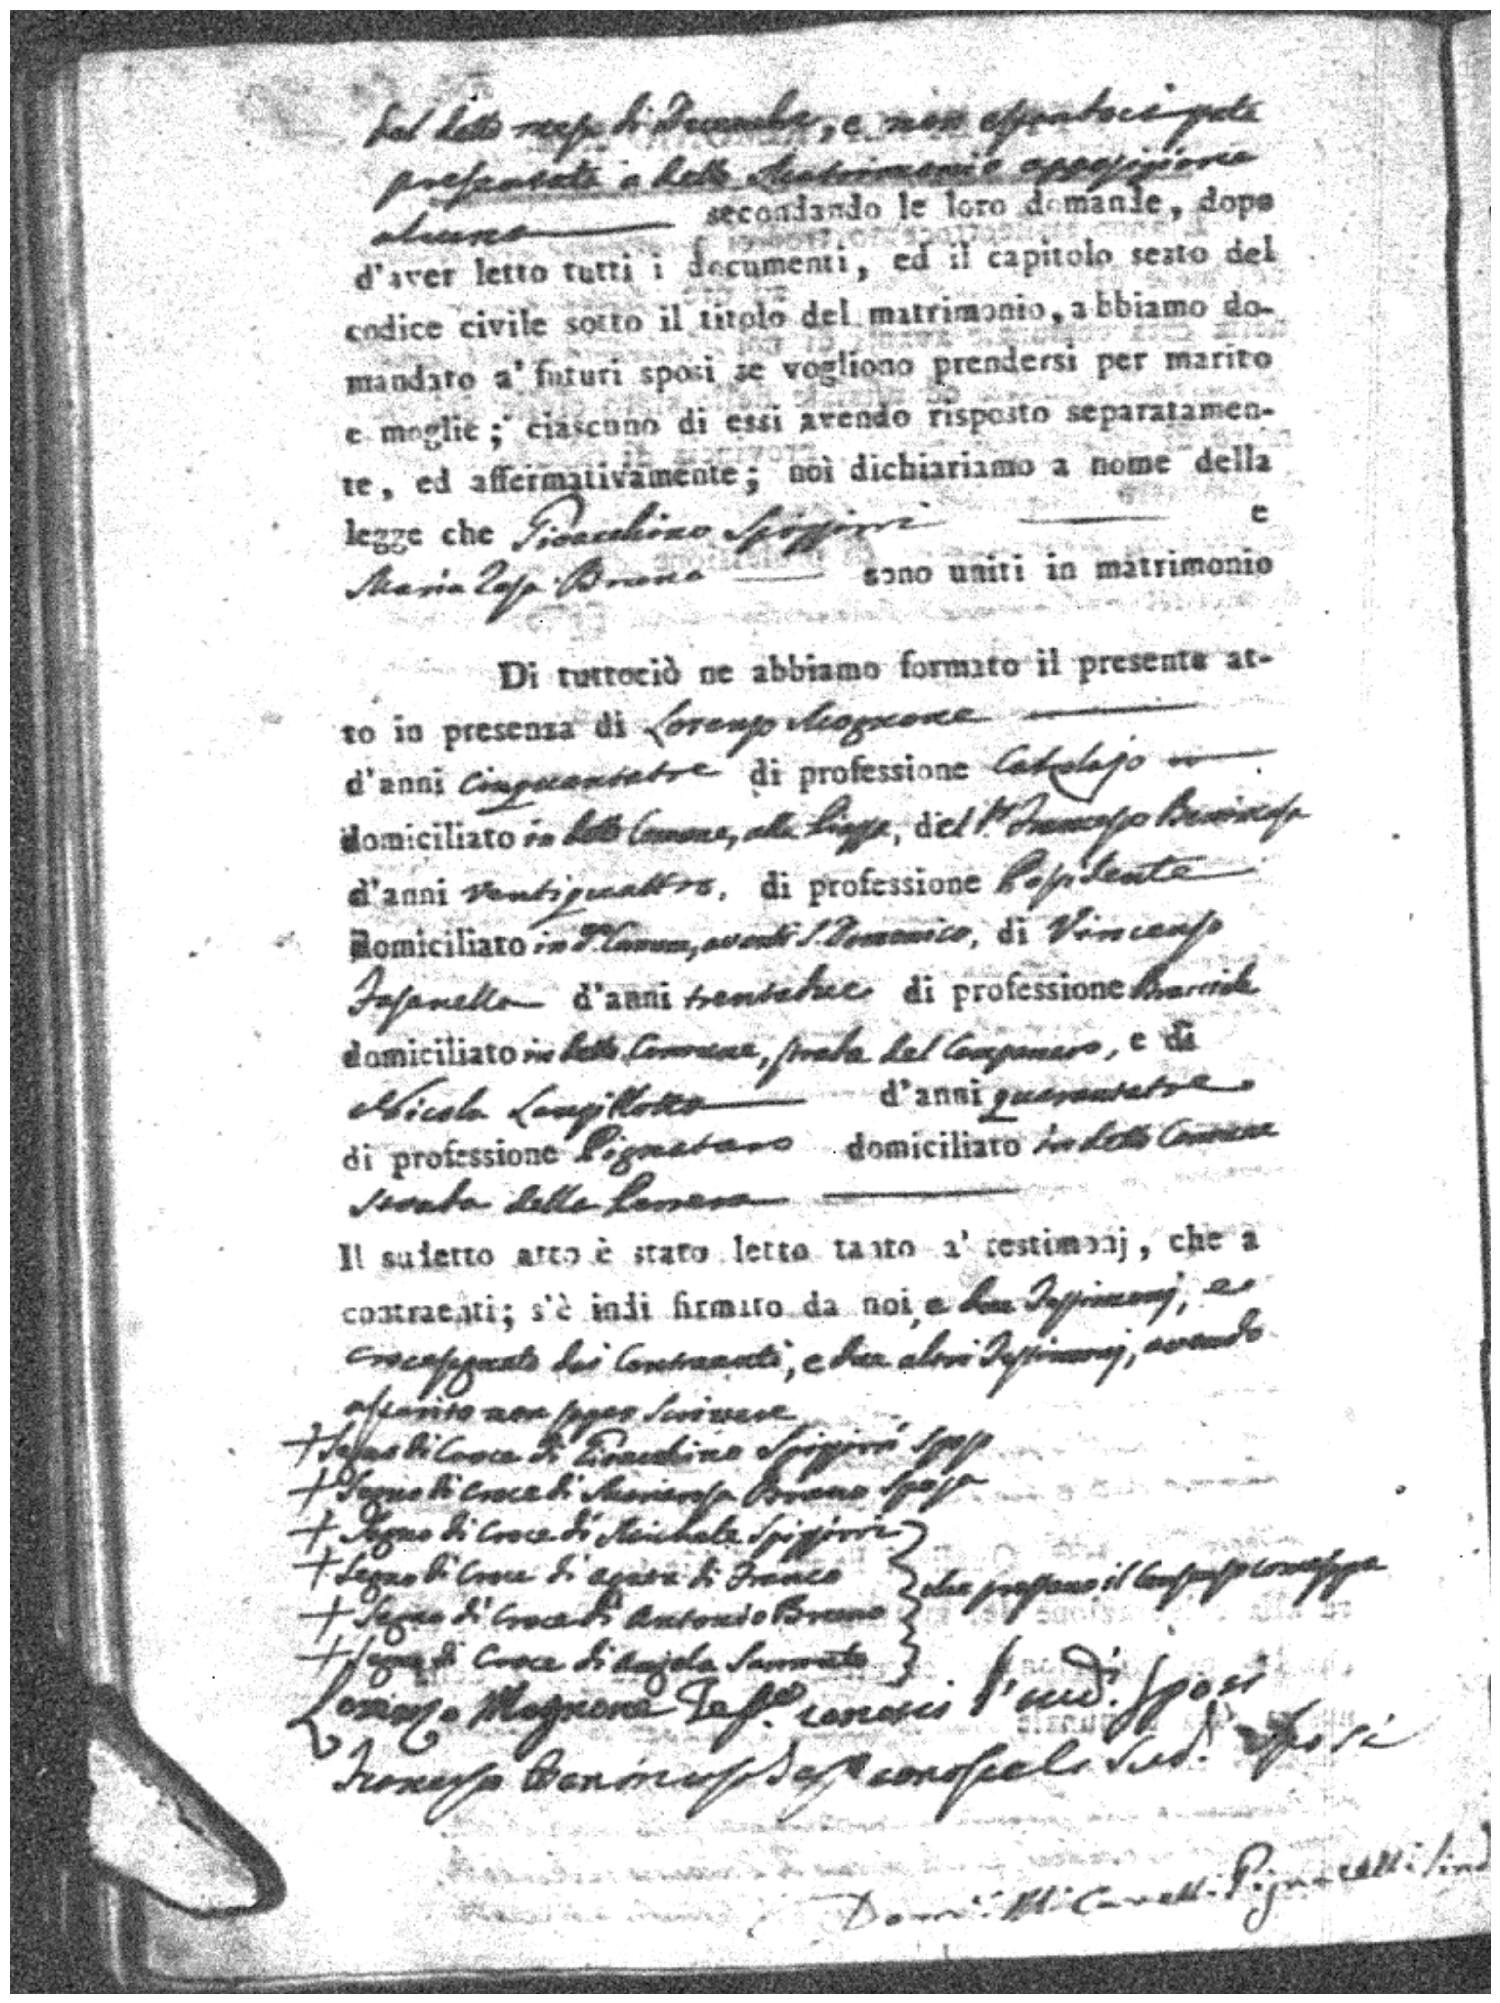 del detto mese di Decembre, e non essendoci stata
presentata a detto Matrimonio opposizione
alcuna secondando le loro domande, dopo
d'aver letto tutti i documenti, ed il capitolo sesto del
codice civile sotto il titolo del matrimonio, abbiamo do-
mandato a' futuri sposi se vogliono prendersi per marito
e moglie; ciascuno di essi avendo risposto separatamen-
te, ed affermativamente; noi dichiariamo a nome della
legge che Gioacchino Spizzirri e
Maria Rosa Bruno sono uniti in matrimonio
Di tuttociò ne abbiamo formato il presente at-
to in presenza di Lorenzo Magnone
d'anni cinquantatre di professione
domiciliato in detto Comune, alla Piazza, del Francesco
d'anni ventiquattro, di professione Possidente
domiciliato in Comune, avanti S. Domenico, di Vincenzo
Fasanella d'anni trentadue di professione Bracciale
domiciliato in detto Comune, strada del e di
Nicola d'anni quarantatre
di professione Pignataro domiciliato in detto Comune
strada della
Il sudetto atto è stato letto tanto a' testimonj, che a
contraenti; s'è indi firmato da noi, e due Testimonj, e
crocesegnato dai Contraenti, e due altri Testimonj, avendo
asserito non saper scrivere
+ Segno di Croce di Gioacchino Spizzirri sposo
+ Segno di croce di Mariarosa Bruno sposa
+ Segno di Croce di Michele Spizzirri
+ Segno di Croce di di Franco
+ Segno di Croce di Antonio Bruno che prestano il Consenso
+ Segno di Croce di Angela
Lorenzo Magnone Test. conosci sud. sposi
Francesco Test. sud. sposi
Pignatelli Sind